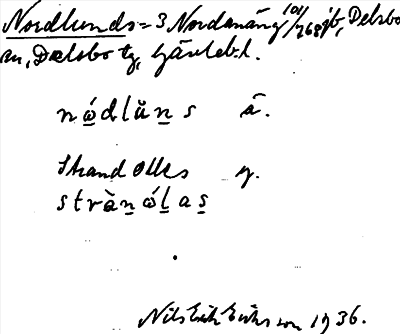 Nordlunds = 3 Nordanäng 101/768 jb, Delsbo
sn, Delsbo tg, Gävleb. l.
nǫ́dlŭn̲s ä.
Strand Olles y.
stràn̲ǫ́l̲as̲
Nils Erik Eriksson 1936.